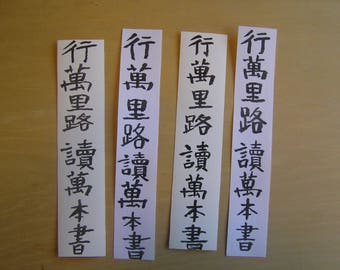 行萬里路讀萬本書
行萬里路讀萬本書
行萬里路讀萬本書
行萬里路讀萬本書